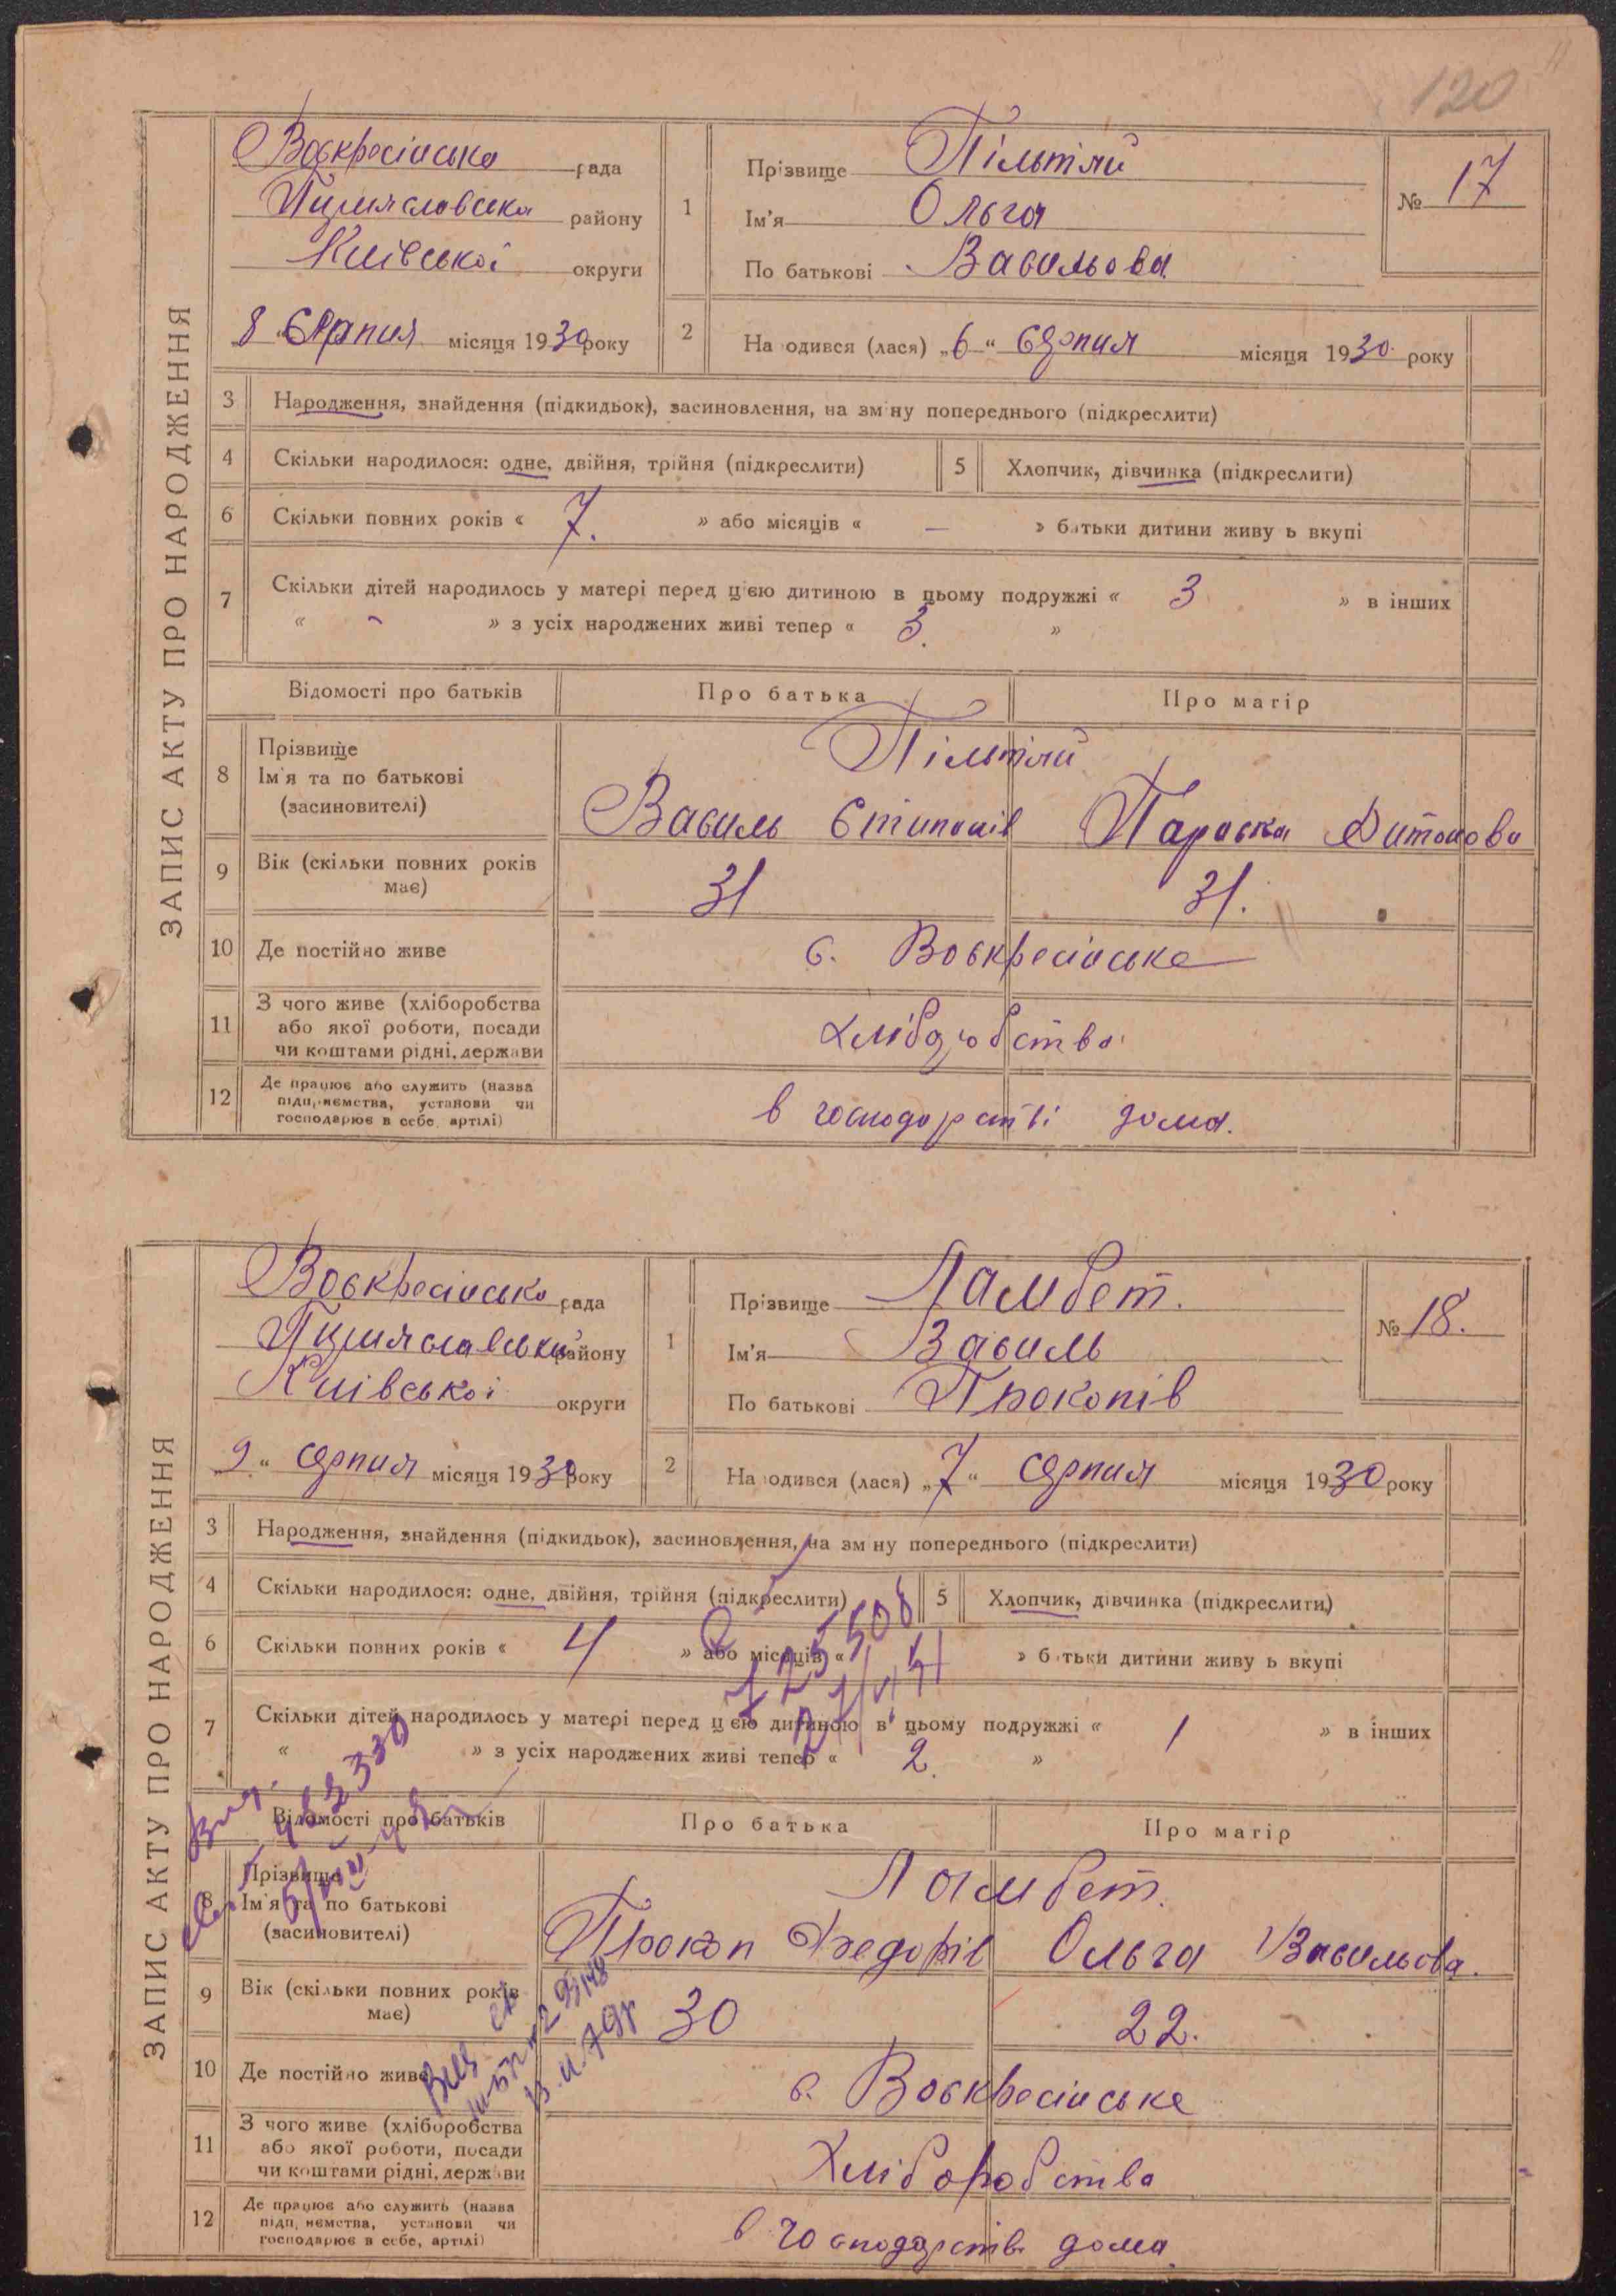 120
ЗАПИС АКТУ ПРО НАРОДЖЕННЯ
Воскресінська рада
району
Київської округи
8 Серпня місяця 1930 року
1
Прізвище Пільтяй
Ім'я Ольга
По батькові Васильова
№ 17
2
На одився (лася) „6“ серпня місяця 1930 року
3 Народження, знайдення (підкидьок), засиновлення, на зм ну попереднього (підкреслити)
4 Скільки народилося: одне, двійня, трійня (підкреслити) 5 Хлопчик, дівчинка (підкреслити)
6 Скільки повних років « 7. » або місяців « — » батьки дитини живу ь вкупі
7 Скільки дітей народилось у матері перед цією дитиною в цьому подружжі « 3 » в інших
« - » з усіх народжених живі тепер « 3. »
Відомості про батьків Про батька Про матір
8 Прізвище
Ім'я та по батькові
(засиновителі)
Пільтяй
Василь Параска
9 Вік (скільки повних років
має)
31 31.
10 Де постійно живе с. Воскресінське
11 З чого живе (хліборобства
або якої роботи, посади
чи коштами рідні, держави
хліборобство
12 Де працює або служить (назва
підприємства, установи чи
господарює в себе, артілі)
в господарстві дома.
ЗАПИС АКТУ ПРО НАРОДЖЕННЯ
Воскресінська рада
району
Київської округи
„9“ серпня місяця 1930 року
1
Прізвище Ламбет.
Ім'я Василь
По батькові Прокопів
№ 18.
2
На одився (лася) „7“ серпня місяця 1930 року
3 Народження, знайдення (підкидьок), засиновлення, на зм ну попереднього (підкреслити)
4 Скільки народилося: одне, двійня, трійня (підкреслити) 5 Хлопчик, дівчинка (підкреслити)
6 Скільки повних років « 4 » або місяців « » батьки дитини живу ь вкупі
7 Скільки дітей народилось у матері перед цією дитиною в цьому подружжі « 1 » в інших
« » з усіх народжених живі тепер « 2. »
Відомості про батьків Про батька Про матір
8 Прізвище
Ім'я та по батькові
(засиновителі)
Ламбет.
Прокоп Федорів Ольга Васильова.
9 Вік (скільки повних років
має)
30 22.
10 Де постійно живе с. Воскресінське
11 З чого живе (хліборобства
або якої роботи, посади
чи коштами рідні, держави
Хліборобство
12 Де працює або служить (назва
підприємства, установи чи
господарює в себе, артілі)
в господарстві дома.